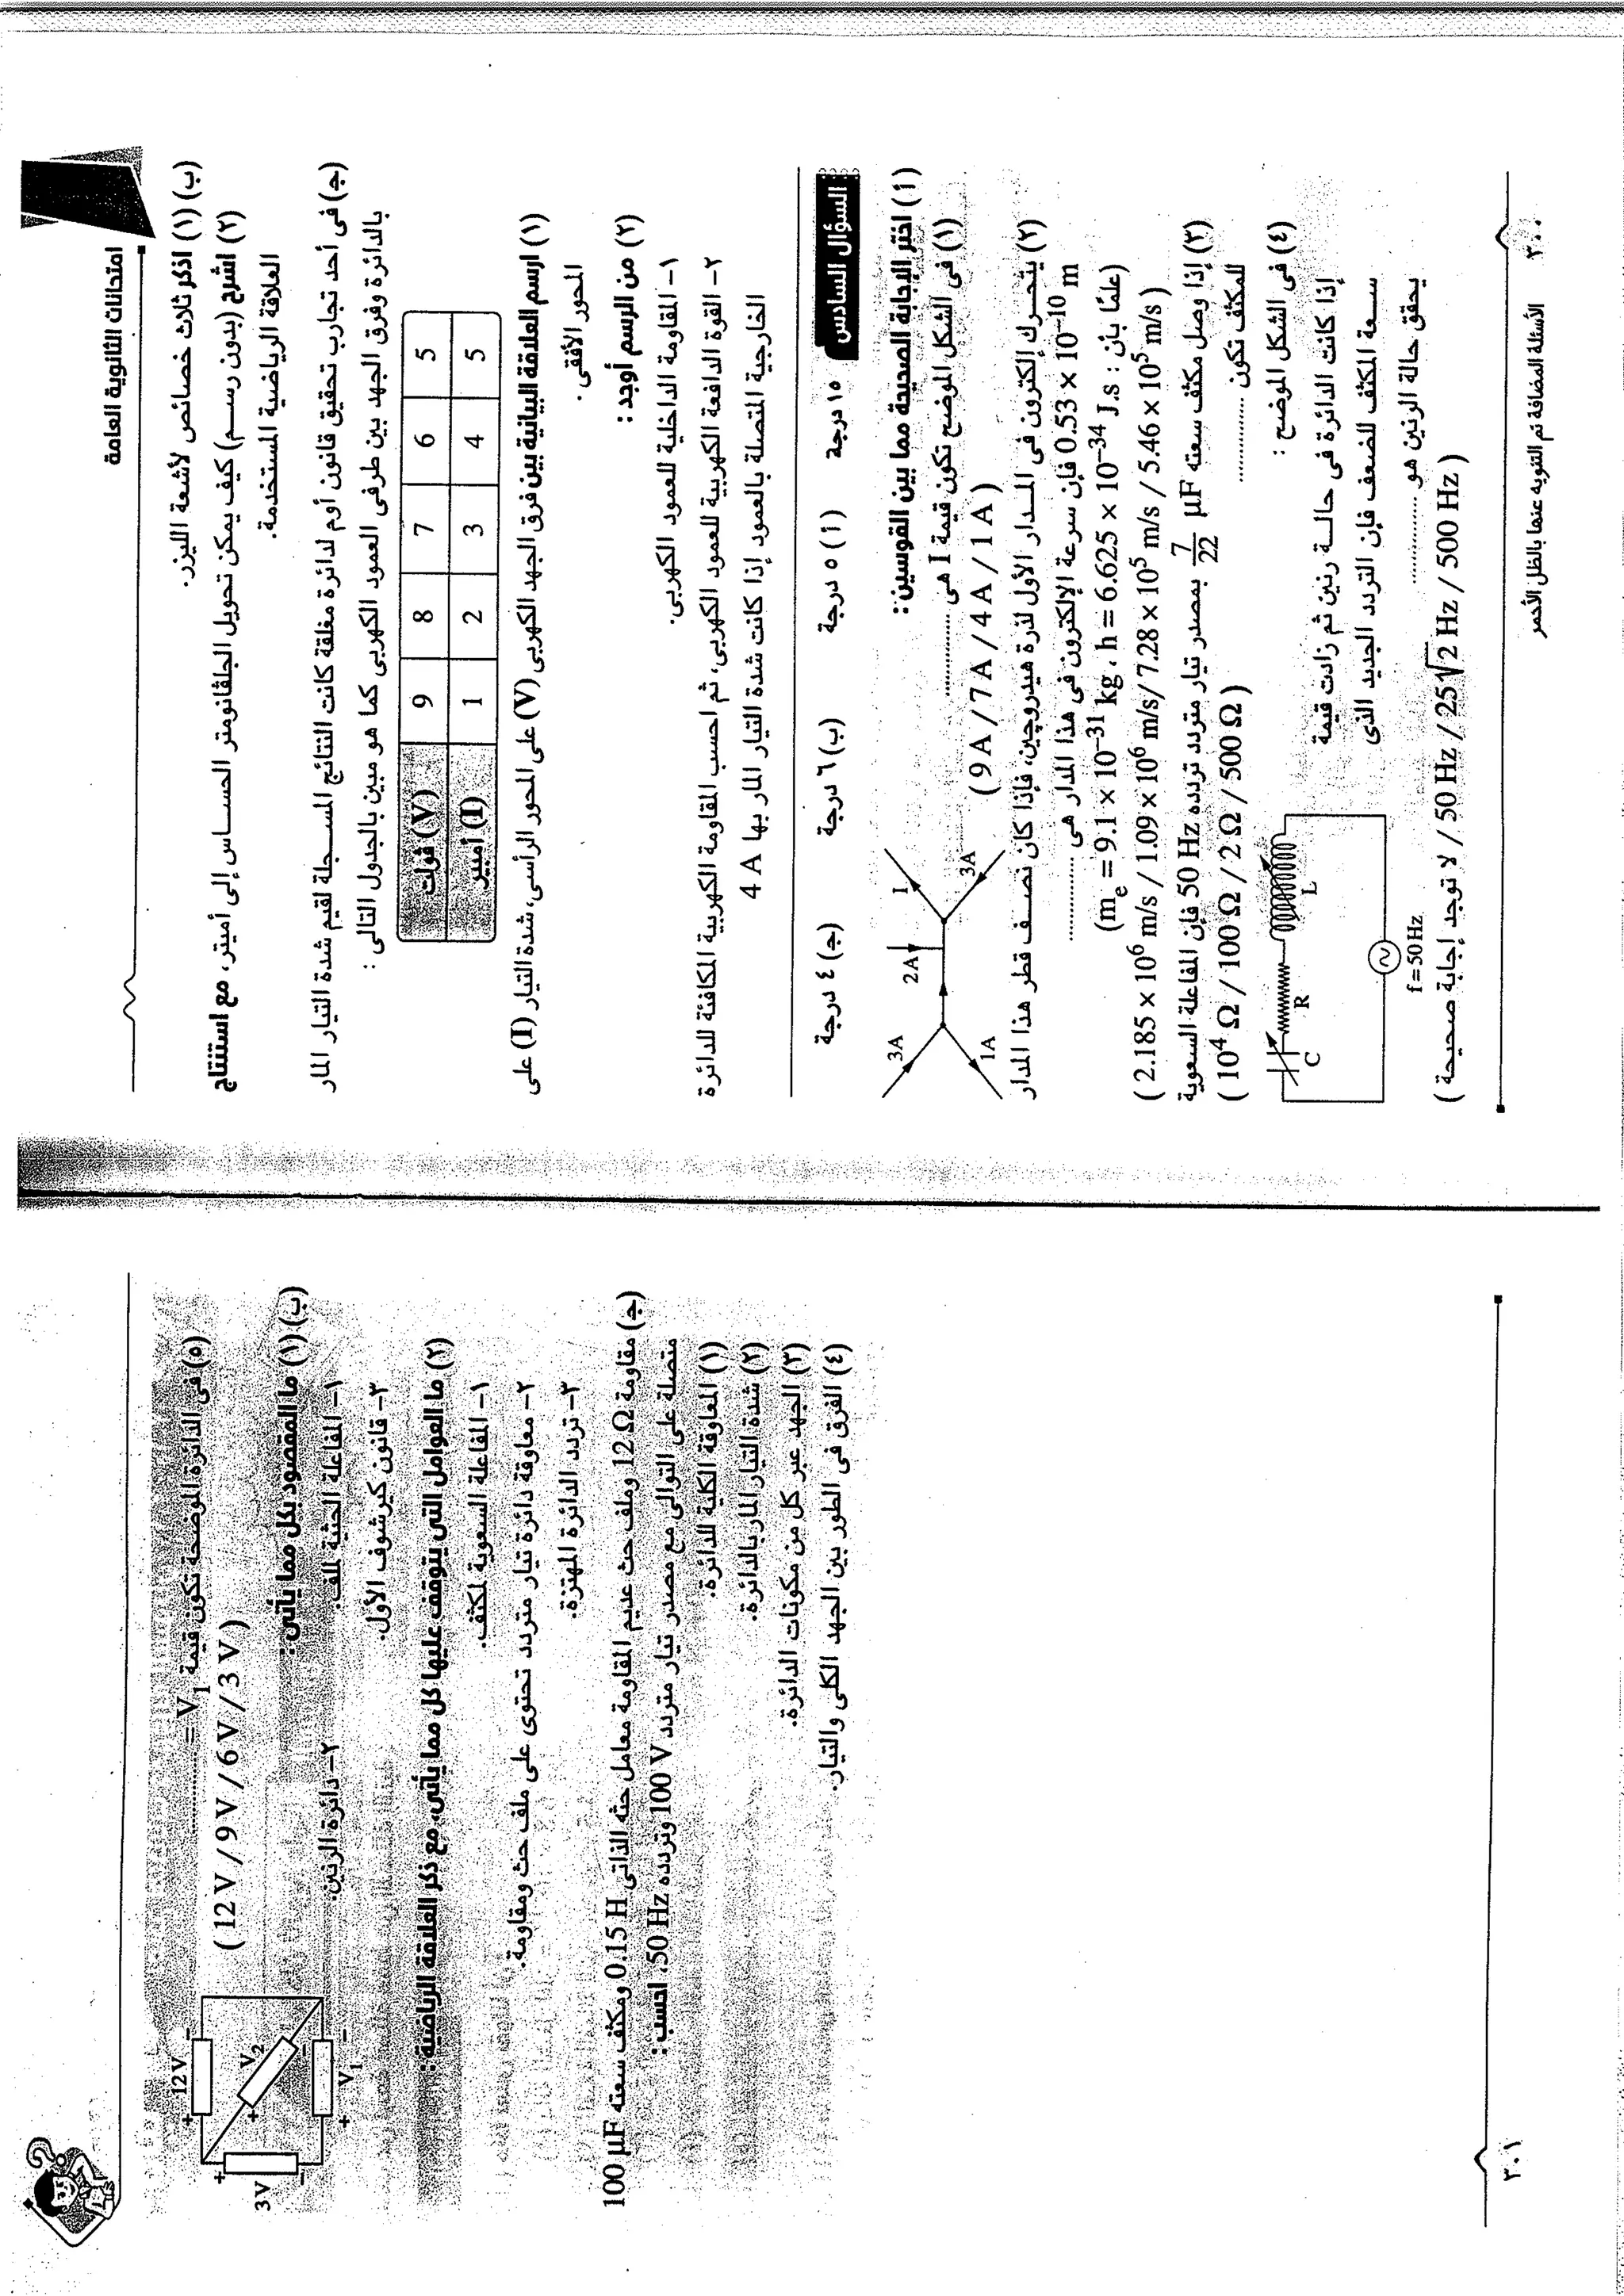 امتحانات الثانوية العامة
(ب) (١) اذكر ثلاث خصائص لأشعة الليزر.
(٢) اشرح (بدون رسم) كيف يمكن تحويل الجلفانومتر الحساس إلى أميتر، مع استنتاج
العلاقة الرياضية المستخدمة.
(جـ) فى أحد تجارب تحقيق قانون أوم لدائرة مغلقة كانت النتائج المسجلة لقيم شدة التيار المار
بالدائرة وفرق الجهد بين طرفى العمود الكهربى كما هو مبين بالجدول التالى :
(V) فولت 9 8 7 6 5
(I) أمبير 1 2 3 4 5
(١) ارسم العلاقة البيانية بين فرق الجهد الكهربى (V) على المحور الرأسى، شدة التيار (I) على
المحور الأفقى.
(٢) من الرسم أوجد :
١- المقاومة الداخلية للعمود الكهربى.
٢- القوة الدافعة الكهربية للعمود الكهربى، ثم احسب المقاومة الكهربية المكافئة للدائرة
الخارجية المتصلة بالعمود إذا كانت شدة التيار المار بها 4 A
السؤال السادس ١٥ درجة (أ) ٥ درجة (ب) ٦ درجة (جـ) ٤ درجة
(أ) اختر الإجابة الصحيحة مما بين القوسين :
(١) فى الشكل الموضح تكون قيمة I هى ............
( 9 A / 7 A / 4 A / 1 A )
3A
1A
2A
I
3A
(٢) يتحرك إلكترون فى المدار الأول لذرة هيدروچين، فإذا كان نصف قطر هذا المدار
0.53 × 10⁻¹⁰ m فإن سرعة الإلكترون فى هذا المدار هى ............
(علمًا بأن : mₑ = 9.1 × 10⁻³¹ kg ، h = 6.625 × 10⁻³⁴ J.s)
( 2.185 × 10⁶ m/s / 1.09 × 10⁶ m/s / 7.28 × 10⁵ m/s / 5.46 × 10⁵ m/s )
(٣) إذا وصل مكثف سعته 7/22 µF بمصدر تيار متردد تردده 50 Hz فإن المفاعلة السعوية
للمكثف تكون ............ ( 10⁴ Ω / 100 Ω / 2 Ω / 500 Ω )
(٤) فى الشكل الموضح :
إذا كانت الدائرة فى حالة رنين ثم زادت قيمة
سعة المكثف للضعف فإن التردد الجديد الذى
يحقق حالة الرنين هو ............
C
R
L
f = 50 Hz
( لا توجد إجابة صحيحة / 50 Hz / 25√2 Hz / 500 Hz )
الأسئلة المضافة تم التنويه عنها بالظل الأحمر
٣٠٠
(٥) فى الدائرة الموضحة تكون قيمة V₁ = ............
( 12 V / 9 V / 6 V / 3 V )
12 V
+ −
V₂
+ −
3 V
+ −
V₁
+ −
(ب) (١) ما المقصود بكل مما يأتى :
١- المفاعلة الحثية لملف. ٢- دائرة الرنين.
٣- قانون كيرشوف الأول.
(٢) ما العوامل التى يتوقف عليها كل مما يأتى، مع ذكر العلاقة الرياضية :
١- المفاعلة السعوية لمكثف.
٢- معاوقة دائرة تيار متردد تحتوى على ملف حث ومقاومة.
٣- تردد الدائرة المهتزة.
(جـ) مقاومة 12 Ω وملف حث عديم المقاومة معامل حثه الذاتى 0.15 H ومكثف سعته 100 µF
متصلة على التوالى مع مصدر تيار متردد 100 V وتردده 50 Hz، احسب :
(١) المعاوقة الكلية للدائرة.
(٢) شدة التيار المار بالدائرة.
(٣) الجهد عبر كل من مكونات الدائرة.
(٤) الفرق فى الطور بين الجهد الكلى والتيار.
٣٠١